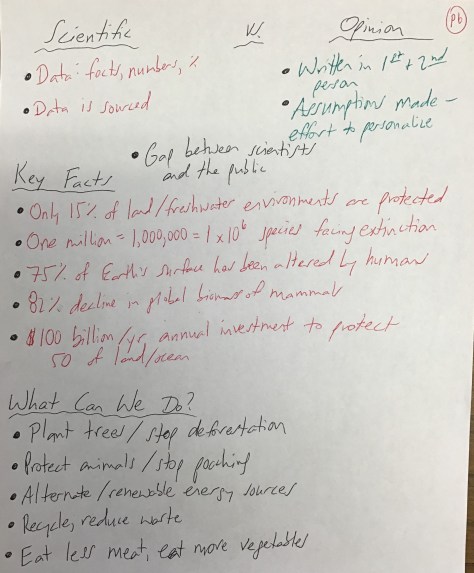 Scientific vs. Opinion
P6
• Data: facts, numbers, %
• Data is sourced
• Written in 1st + 2nd
person
• Assumptions made –
effort to personalize
• Gap between scientists
and the public
Key Facts
• Only 15% of land/freshwater environments are protected
• One million = 1,000,000 = 1 x 10⁶ species facing extinction
• 75% of Earth's surface has been altered by humans
• 82% decline in global biomass of mammals
• $100 billion/yr annual investment to protect
50 of land/ocean
What Can We Do?
• Plant trees/stop deforestation
• Protect animals/stop poaching
• Alternate/renewable energy sources
• Recycle, reduce waste
• Eat less meat, eat more vegetables